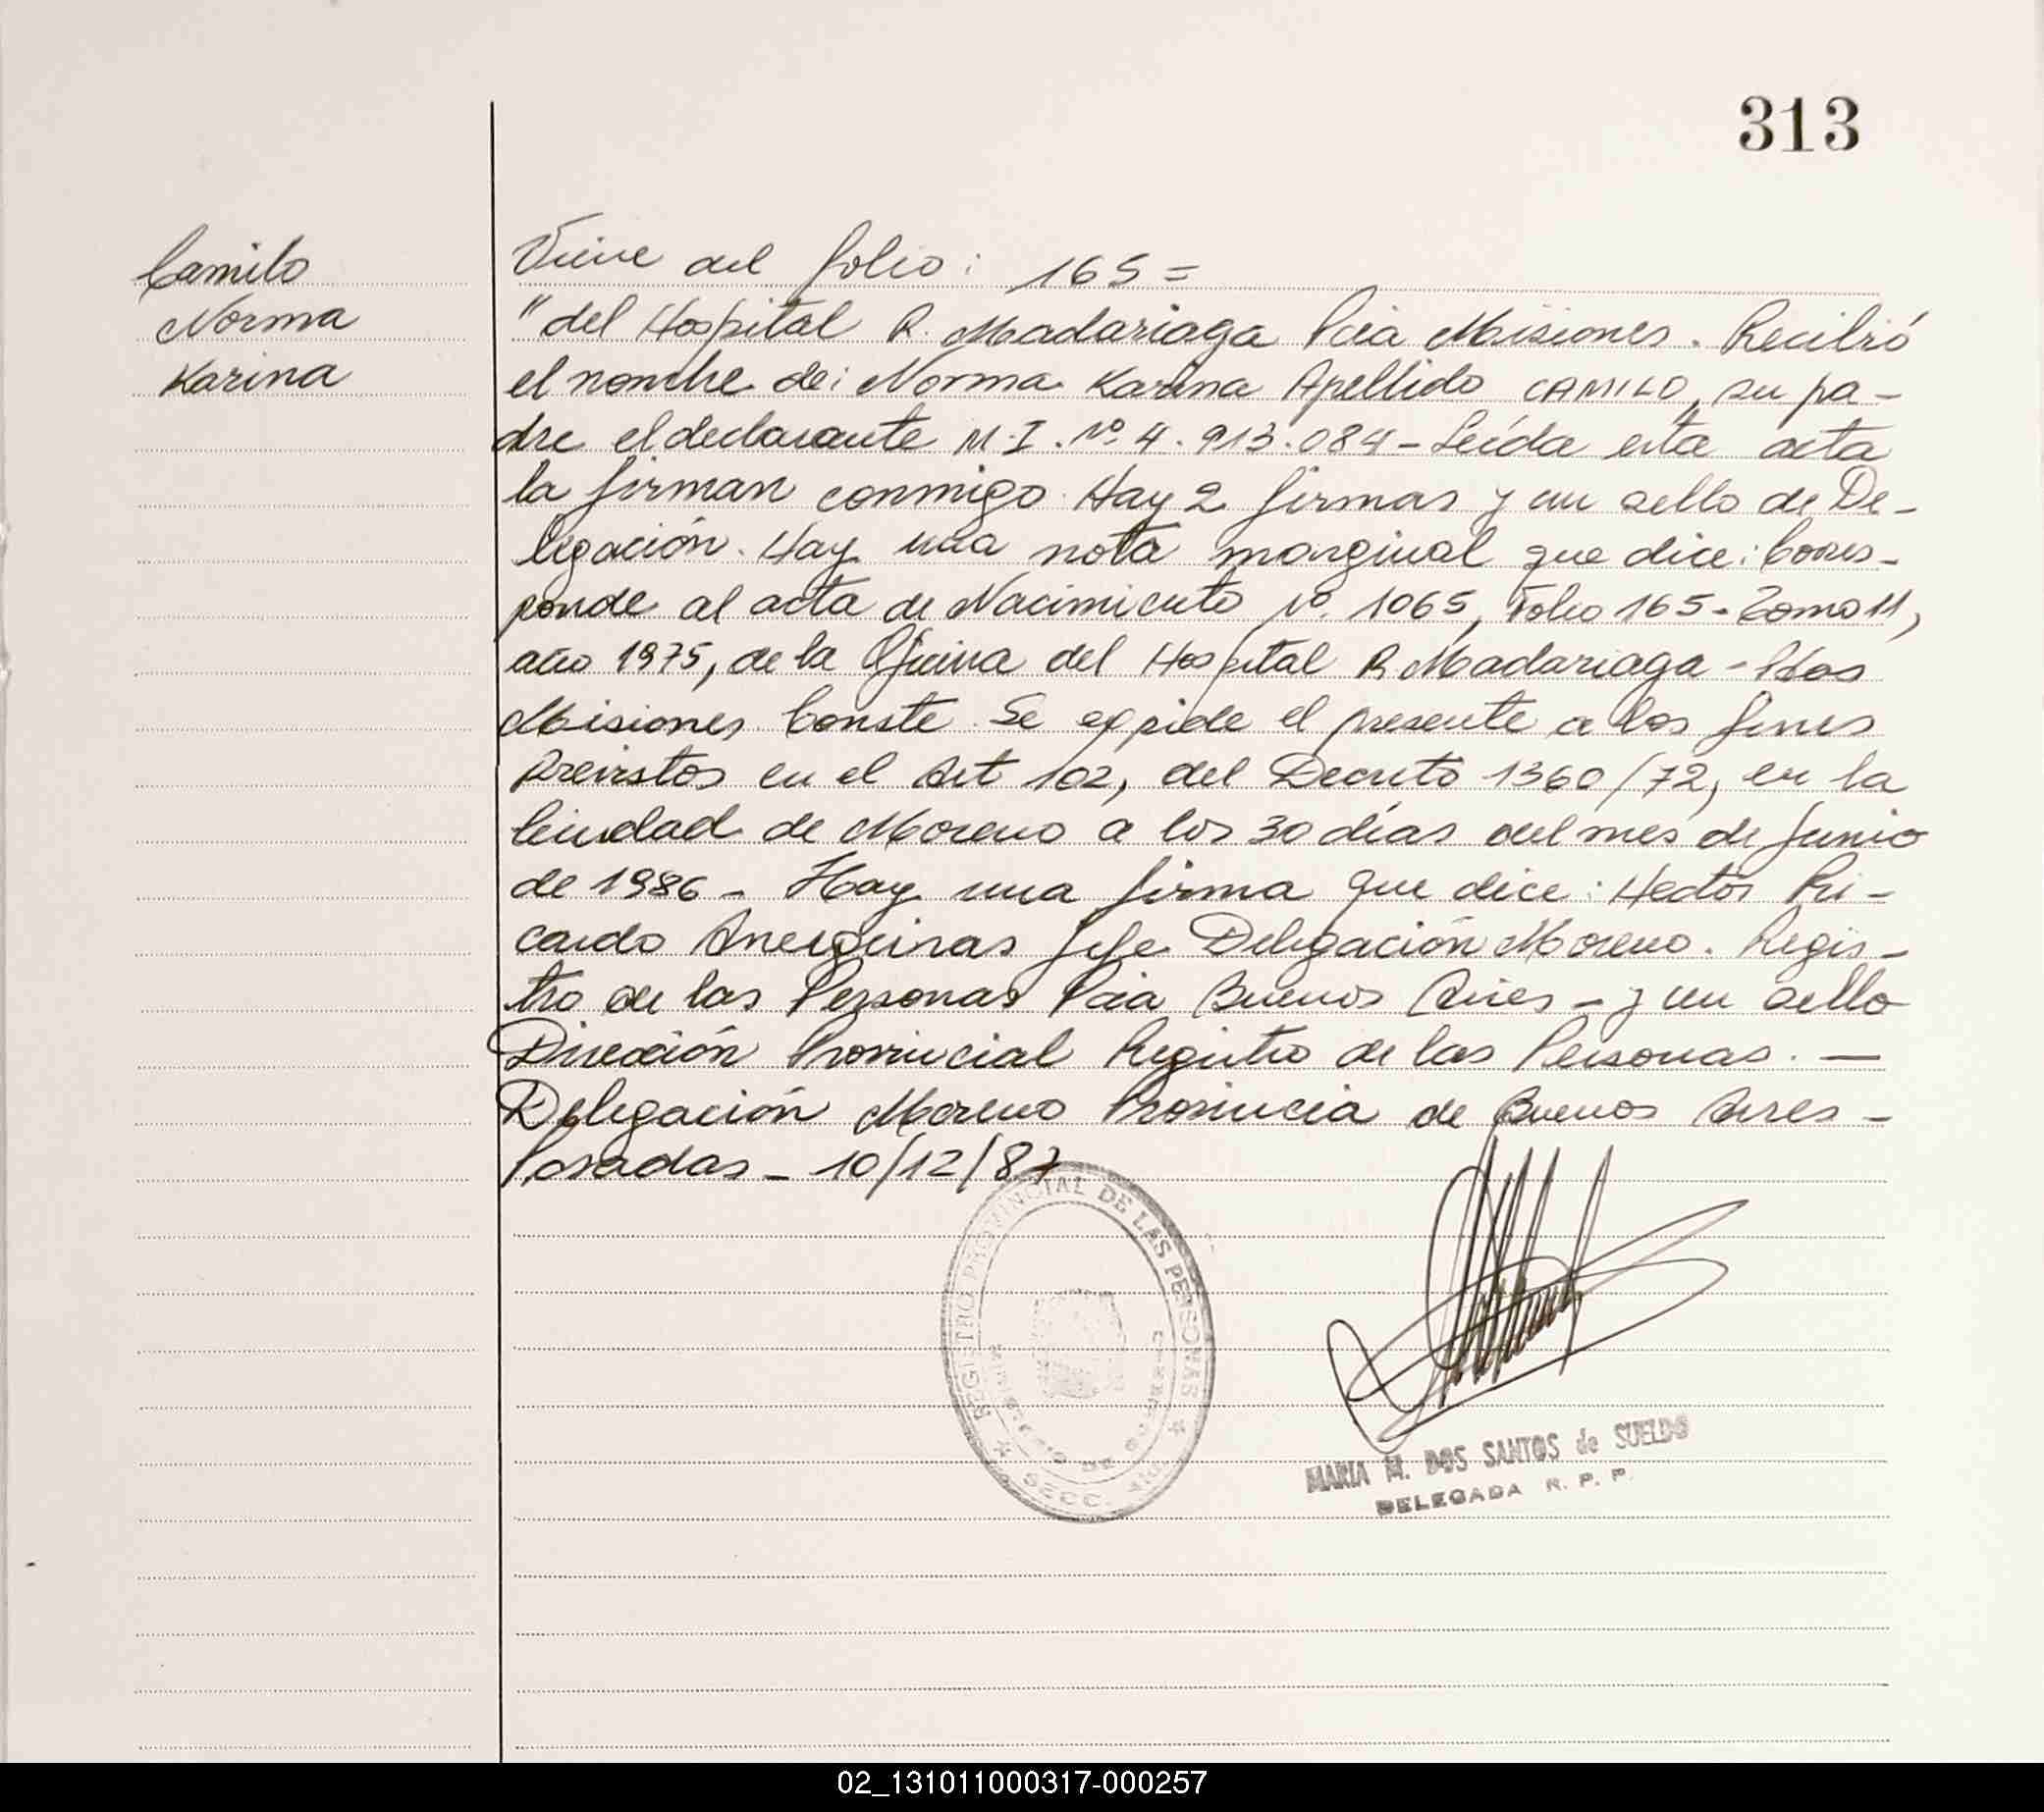 313
Camilo
Norma
Karina
Viene del folio: 165=
"del Hospital R. Madariaga Pcia Misiones. Recibió
el nombre de: Norma Karina Apellido CAMILO, su pa-
dre el declarante M.I. Nº 4.913.084- Leída esta acta
la firman conmigo. Hay 2 firmas y un sello de De-
legación. Hay una nota marginal que dice: Corres-
ponde al acta de Nacimiento Nº. 1065, Folio 165- Tomo 11,
año 1975, de la Oficina del Hospital R. Madariaga - Pdas
Misiones Conste. Se expide el presente a los fines
previstos en el Art 102, del Decreto 1360/72, en la
Ciudad de Moreno a los 30 días del mes de Junio
de 1986 - Hay una firma que dice: Hector Ri-
cardo Jefe Delegación Moreno. Regis-
tro de las Personas Pcia Buenos Aires - y un sello
Dirección Provincial Registro de las Personas. —
Delegación Moreno Provincia de Buenos Aires -
Posadas - 10/12/87
REGISTRO PROVINCIAL DE LAS PERSONAS
MARIA M. DOS SANTOS de SUELDO
DELEGADA R. P. P.
02_131011000317-000257